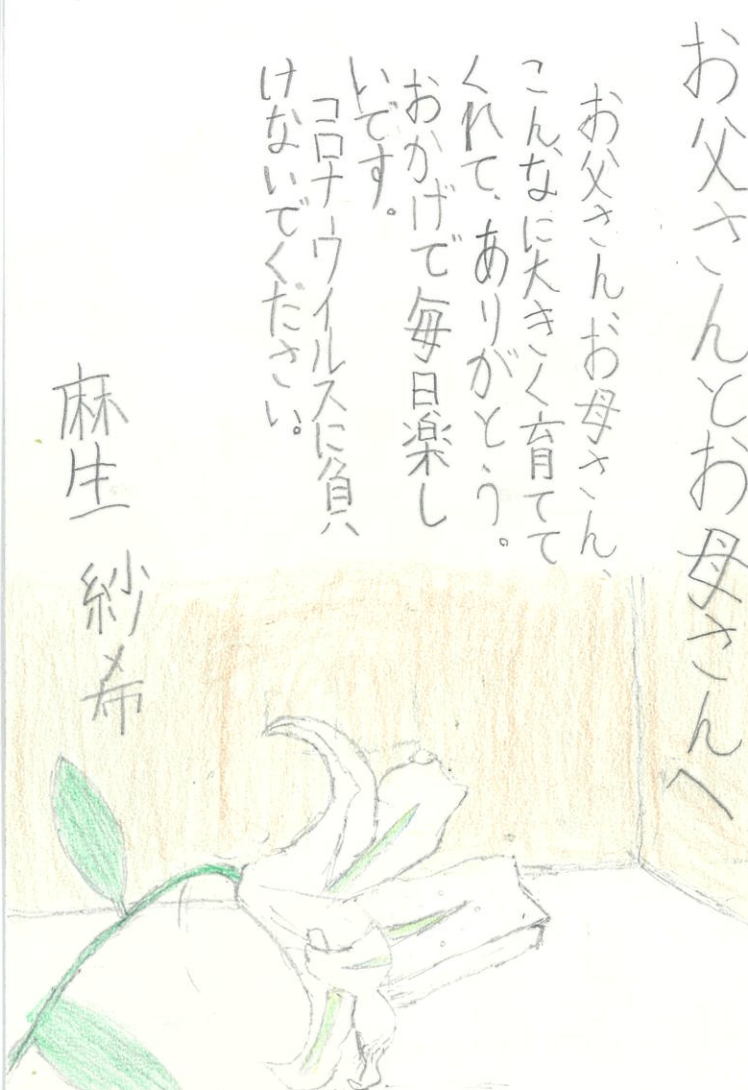 お父さんとお母さんへ
お父さん、お母さん、
こんなに大きく育てて
くれて、ありがとう。
おかげで毎日楽し
いです。
コロナウイルスに負
けないでください。
麻生 紗希